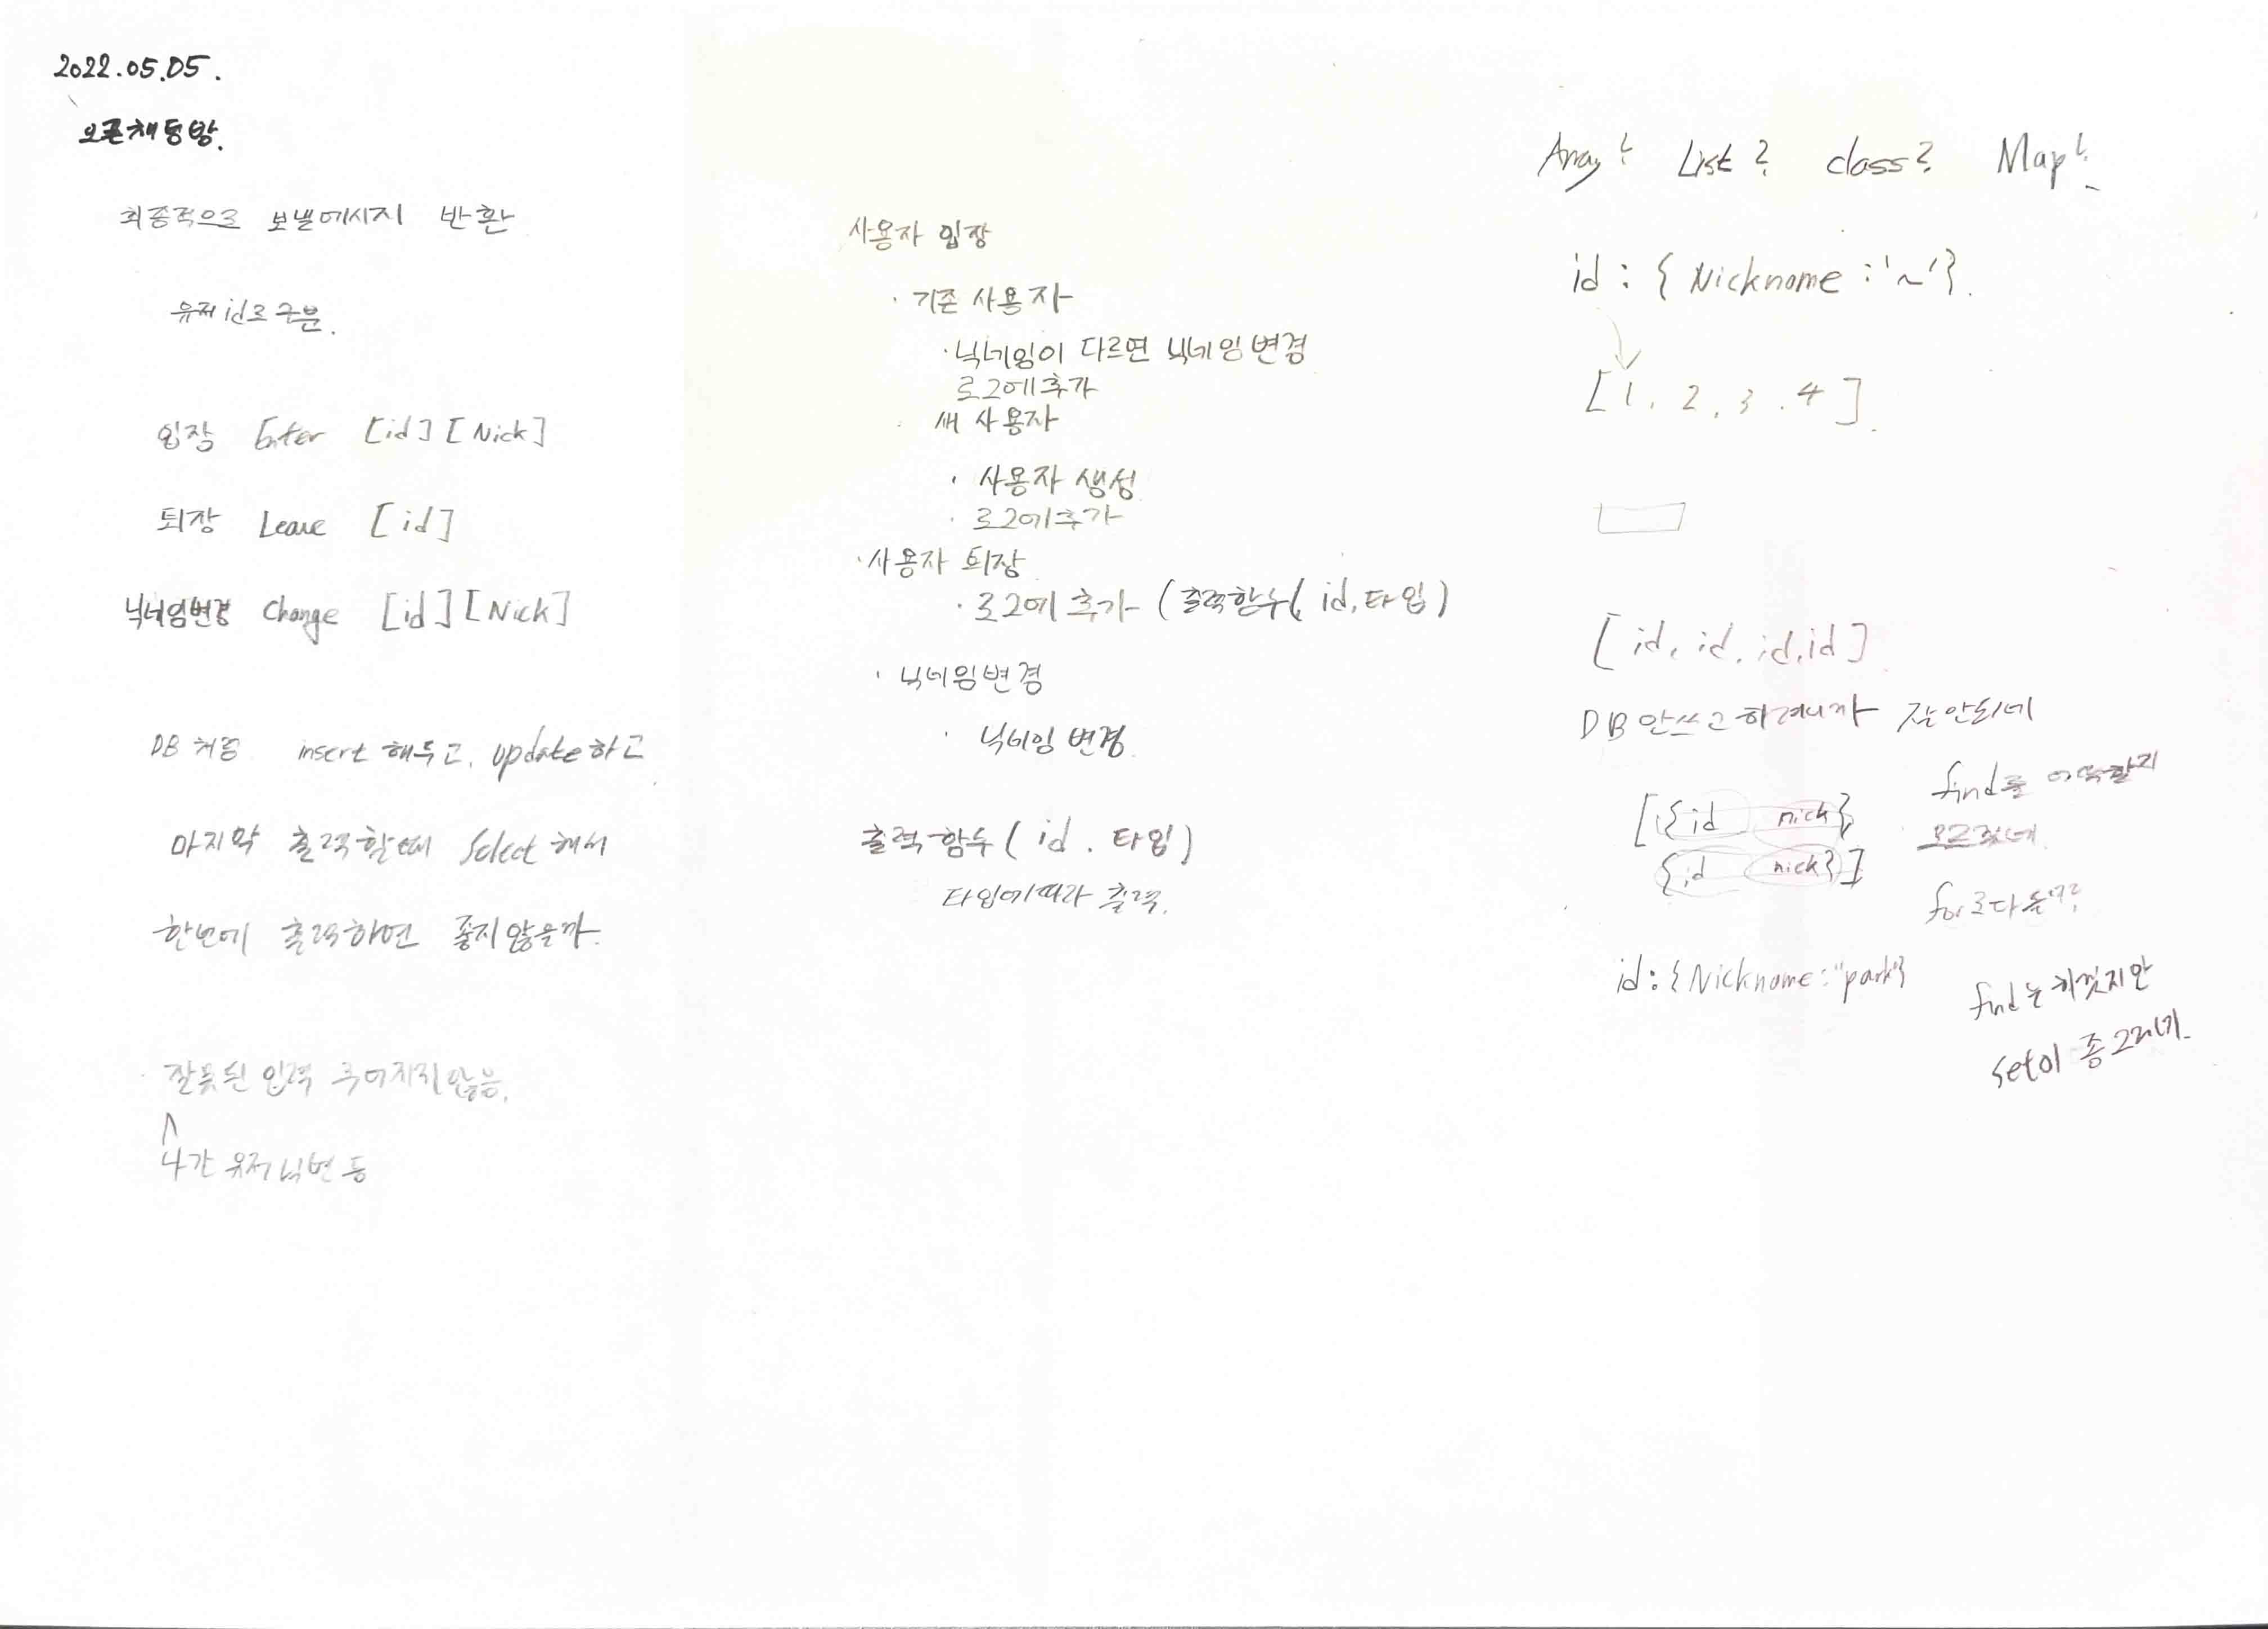 2022.05.05.
오픈채팅방.
최종적으로 보낼메시지 반환
유저id로 구분.
입장 Enter [id][Nick]
퇴장 Leave [id]
닉네임변경 Change [id][Nick]
DB 처음 insert 해두고, update하고
마지막 출력할때 Select 해서
한번에 출력하면 좋지않을까.
· 잘못된 입력 주어지지않음.
나간 유저닉변 등
사용자 입장
· 기존 사용자
· 닉네임이 다르면 닉네임변경
로그에추가
· 새 사용자
· 사용자 생성
· 로그에추가
· 사용자 퇴장
· 로그에 추가 (출력함수( id, 타입)
· 닉네임변경
· 닉네임 변경
출력함수 ( id . 타입)
타입에따라 출력.
Array? List? class? Map?
id : { Nickname : '~'}.
[1, 2, 3 . 4].
[id, id, id, id]
DB 안쓰고 하려니까 잘안되네
[{id nick},
{id nick}]
find를 어떡할지
모르겠네.
for로다돌까?
id:{Nickname:"park"}
find는 하겠지만
set이 좀 그러네.